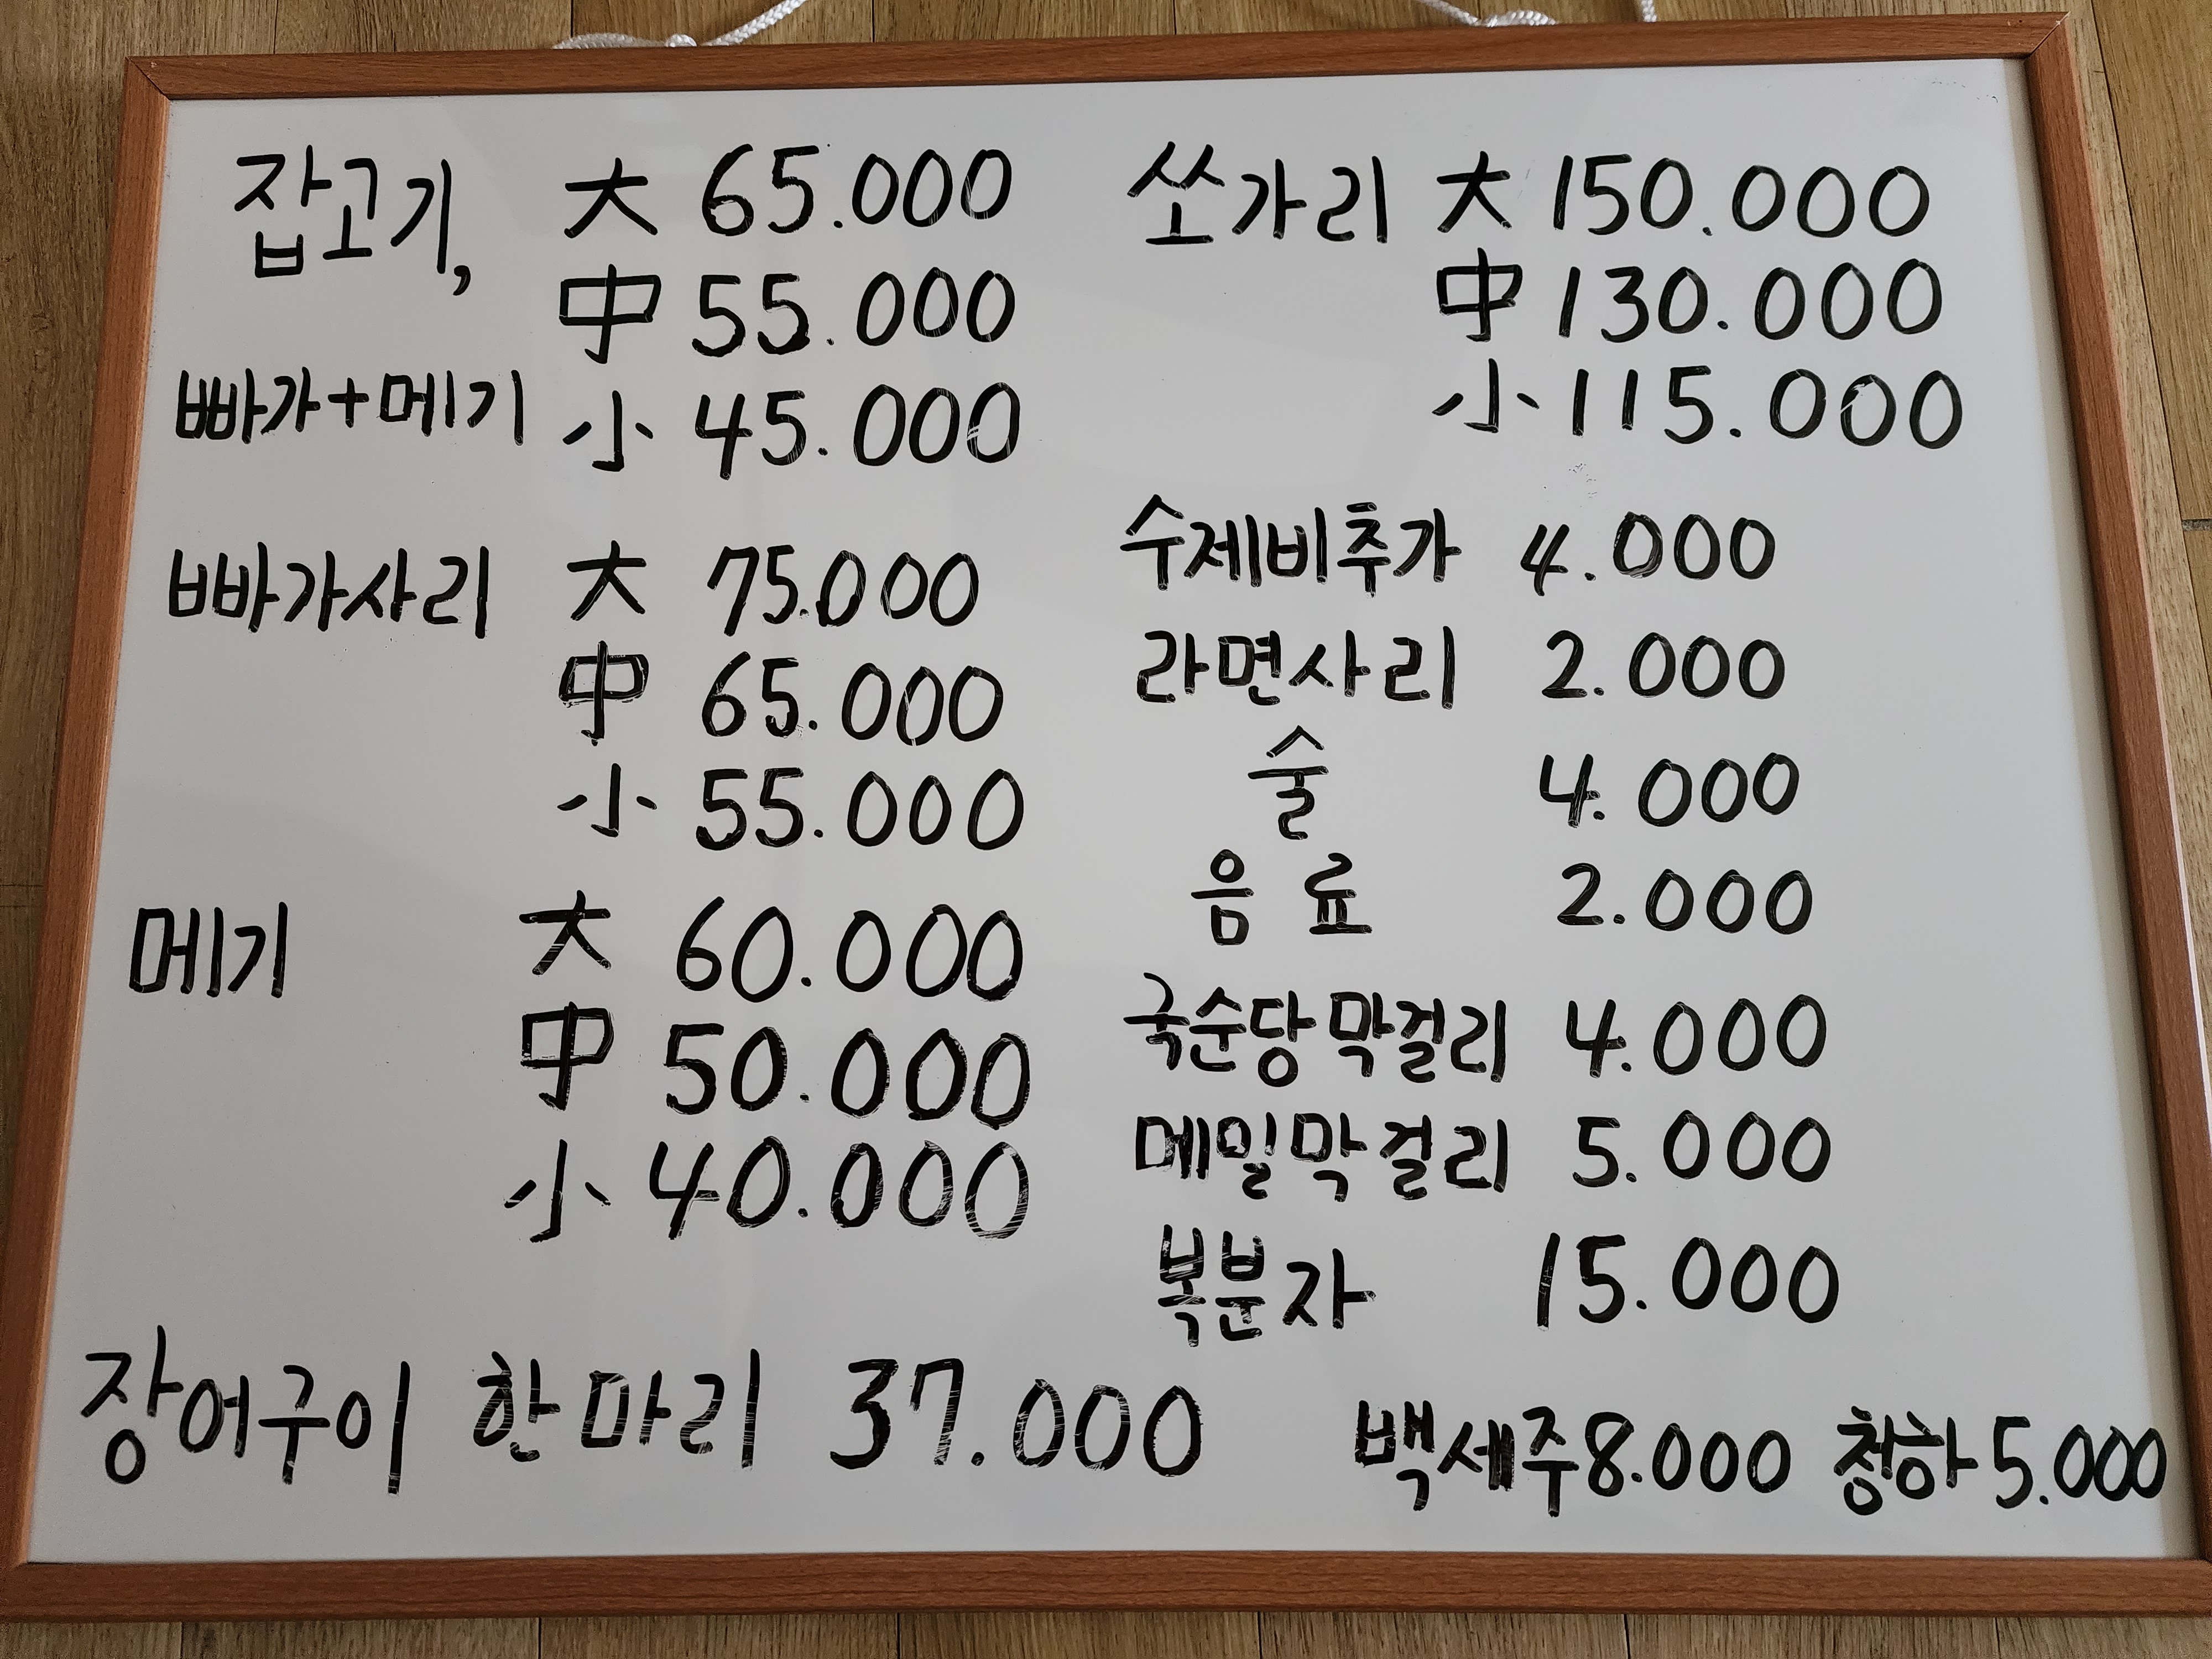 잡고기, 大 65.000
中 55.000
빠가+메기 小 45.000
빠가사리 大 75.000
中 65.000
小 55.000
메기 大 60.000
中 50.000
小 40.000
장어구이 한마리 37.000
쏘가리 大 150.000
中 130.000
小 115.000
수제비추가 4.000
라면사리 2.000
술 4.000
음료 2.000
국순당막걸리 4.000
메밀막걸리 5.000
복분자 15.000
백세주 8.000 청하 5.000